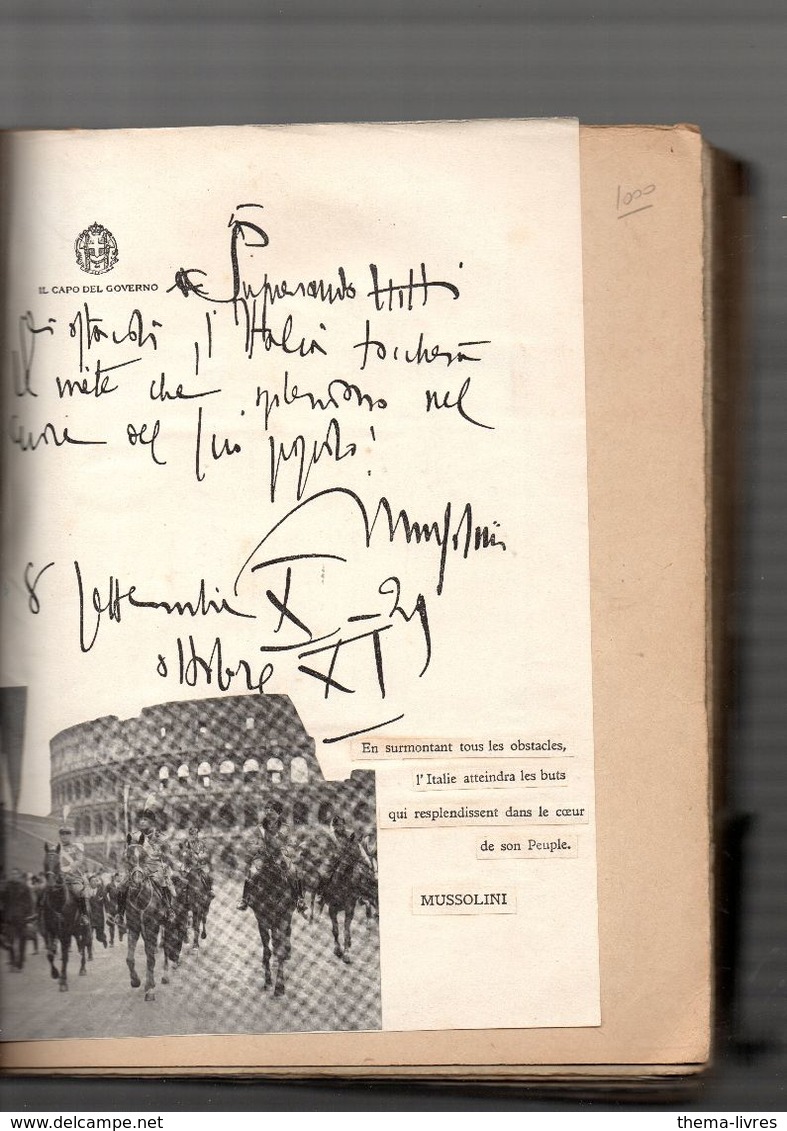 1000
IL CAPO DEL GOVERNO
Superando tutti
gli ostacoli, l'Italia toccherà
mète che splendono nel
cuore del suo popolo!
Mussolini
8 settembre X – 29
ottobre XI
En surmontant tous les obstacles,
l'Italie atteindra les buts
qui resplendissent dans le cœur
de son Peuple.
MUSSOLINI
www.delcampe.net
thema-livres